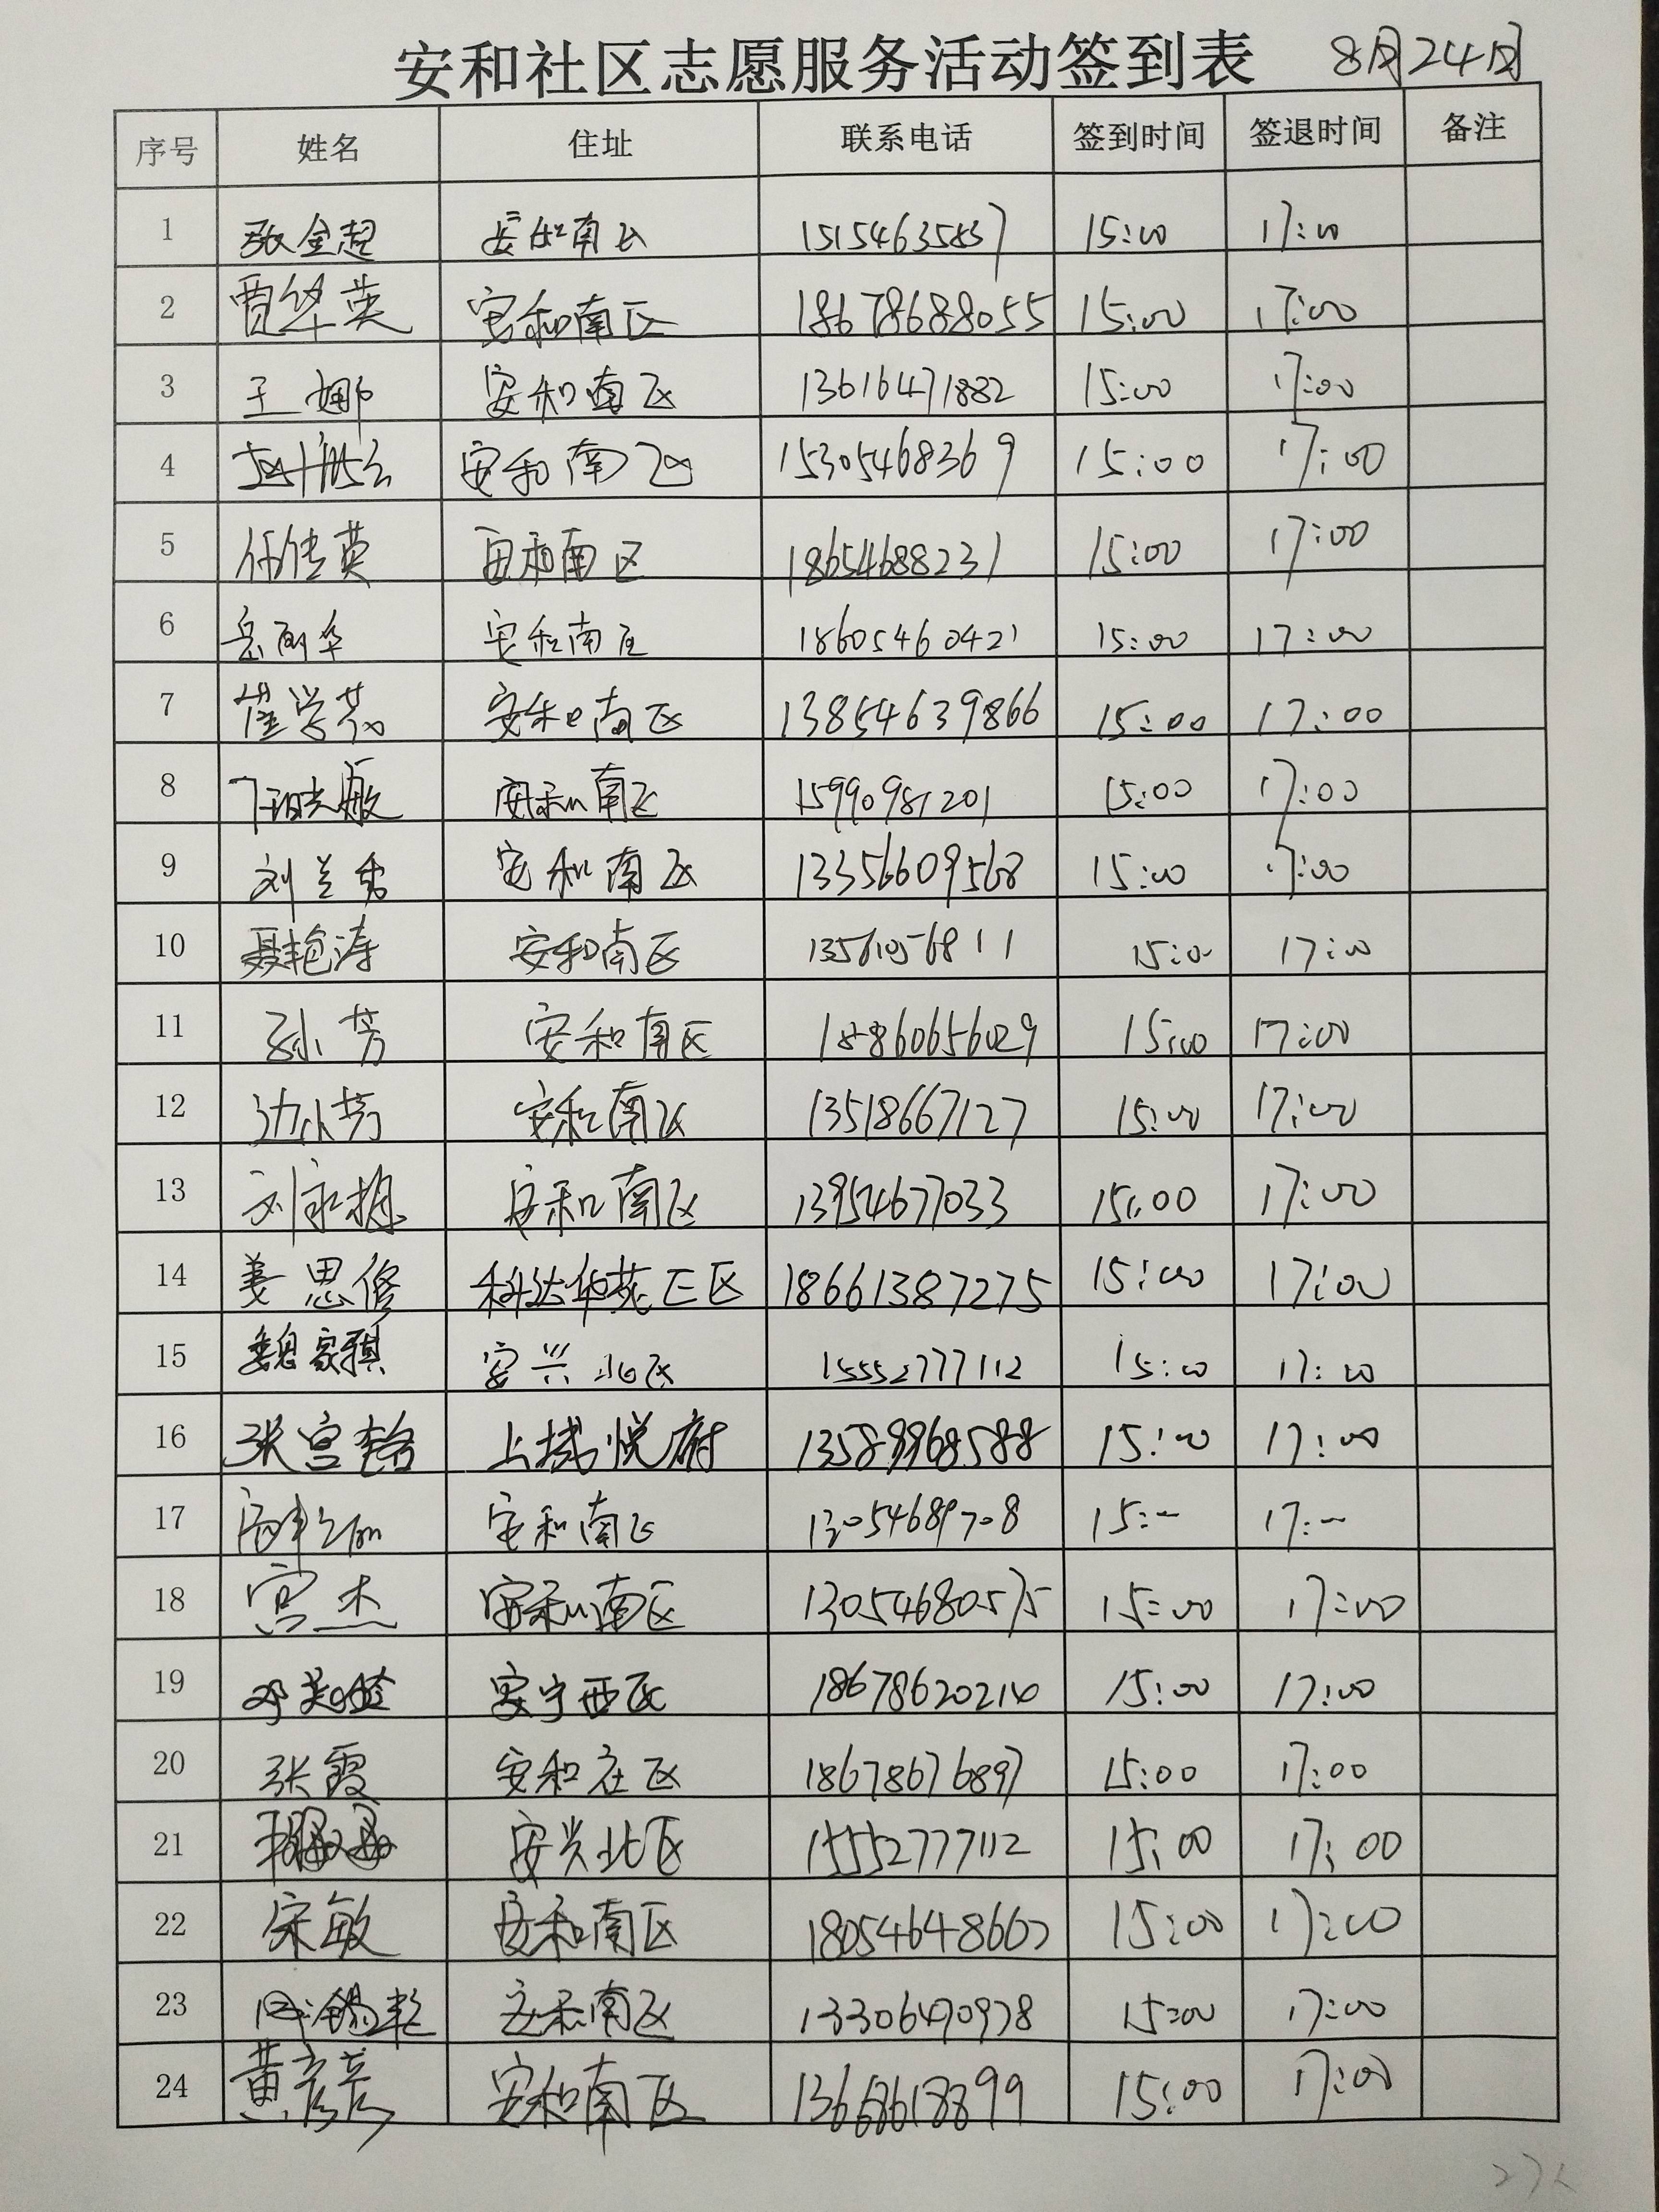 安和社区志愿服务活动签到表 8月24日
序号 姓名 住址 联系电话 签到时间 签退时间 备注
1 张金超 安和南区 15154635837 15:00 17:00
2 贾华英 安和南区 18678688055 15:00 17:00
3 王娜 安和南区 13616471882 15:00 17:00
4 安和南区 15305468369 15:00 17:00
5 任传英 安和南区 18654688231 15:00 17:00
6 岳丽华 安和南区 18605460421 15:00 17:00
7 崔学芬 安和南区 13854639866 15:00 17:00
8 安和南区 15990981201 15:00 17:00
9 刘兰秀 安和南区 13356609568 15:00 17:00
10 聂艳涛 安和南区 13561056811 15:00 17:00
11 孙芳 安和南区 15:00 17:00
12 边小芳 安和南区 13518667127 15:00 17:00
13 刘永梅 安和南区 13954677033 15:00 17:00
14 姜思修 科达华苑三区 18661387275 15:00 17:00
15 魏家骐 安兴北区 15552777112 15:00 17:00
16 张宫 上城悦府 15:00 17:00
17 安和南区 13054689708 15:00 17:00
18 宫杰 安和南区 13054680575 15:00 17:00
19 邓 安宁西区 18678620210 15:00 17:00
20 张霞 安和社区 18678676897 15:00 17:00
21 安兴北区 15552777112 15:00 17:00
22 宋敏 安和南区 18054648667 15:00 17:00
23 安和南区 13306490978 15:00 17:00
24 黄彦彦 安和南区 13668618899 15:00 17:00
27人